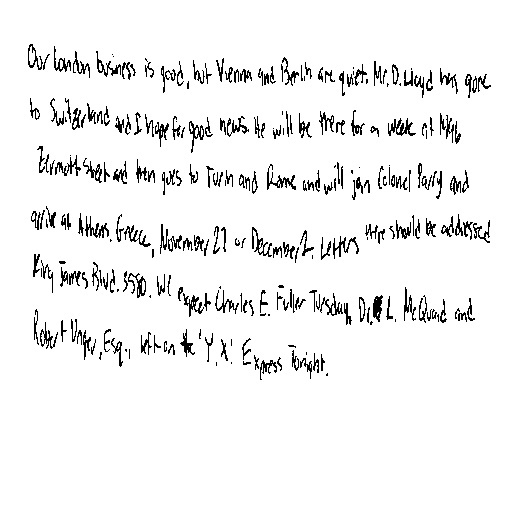 Our London business is good, but Vienna and Berlin are quiet. Mr. D. Lloyd has gone
to Switzerland and I hope for good news. He will be there for a week at
Zermott street and then goes to Turin and Rome and will join Colonel Parry and
arrive at Athens, Greece, November 27 or December 2. Letters there should be addressed
King James Blvd. 3580. We expect Charles E. Fuller Tuesday. Dr. L. McQuaid and
Robert Unger, Esq., left on the 'Y.X.' Express Tonight.